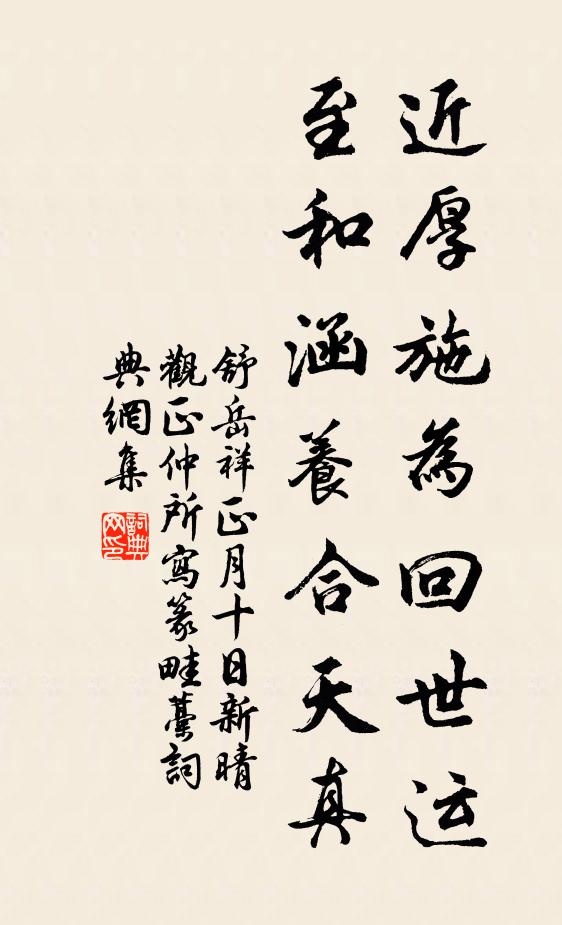 近厚施為回世运
至和涵養合天真
舒岳祥正月十日新晴
觀正仲所寫篆畦藁詞
典網集
詞典网印